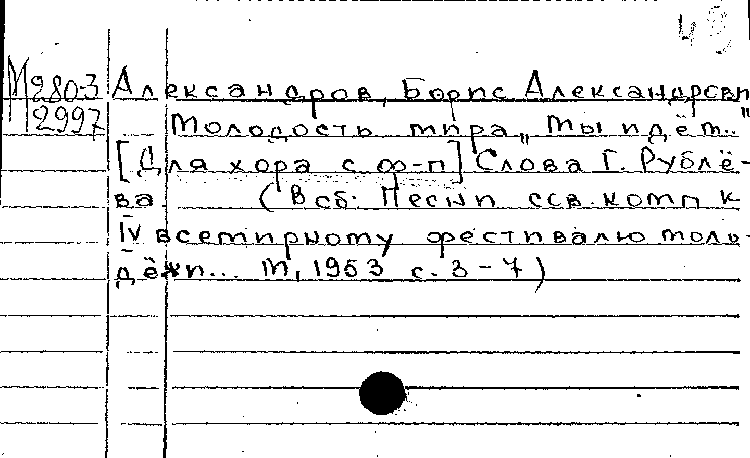 43
М 280-3 Александров, Борис Александрович
М 2997 Молодость мира „Мы идём..."
[Для хора с ф-п] Слова Г. Рублё-
ва. (В сб: Песни сов. комп к
IV всемирному фестивалю моло-
дёжи... М, 1953 с. 3-7)